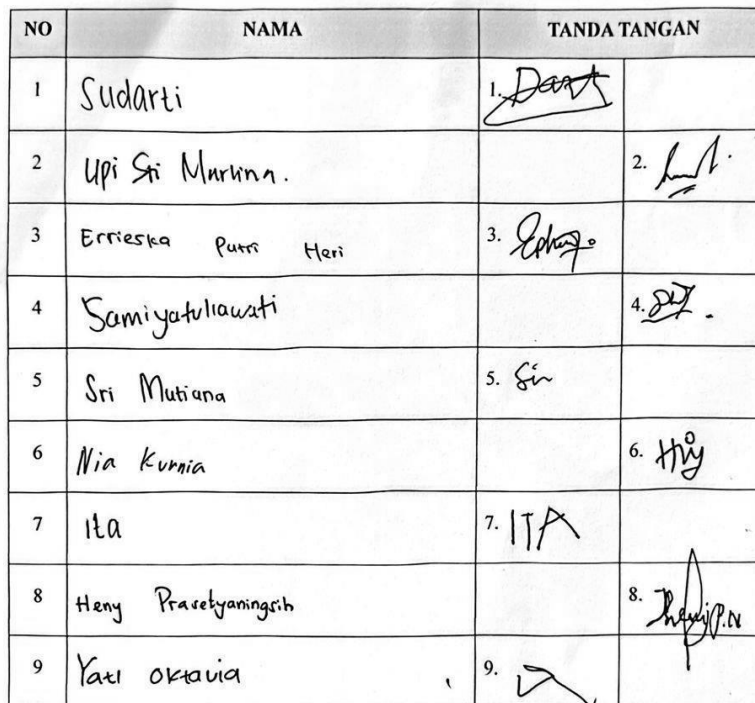 NO NAMA TANDA TANGAN
1 Sudarti 1. Dart
2 Upi Sri Murlina. 2.
3 Errieska Putri Heri 3.
4 Samiyatuliawati 4.
5 Sri Mutiana 5. Sir
6 Nia Kurnia 6.
7 Ita 7. ITA
8 Heny Prasetyaningsih 8.
9 Yati Oktavia 9.